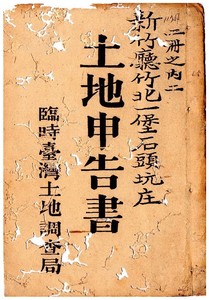 二冊之内二
新竹廳竹北一堡石頭坑庄
土地申告書
臨時臺灣土地調查局